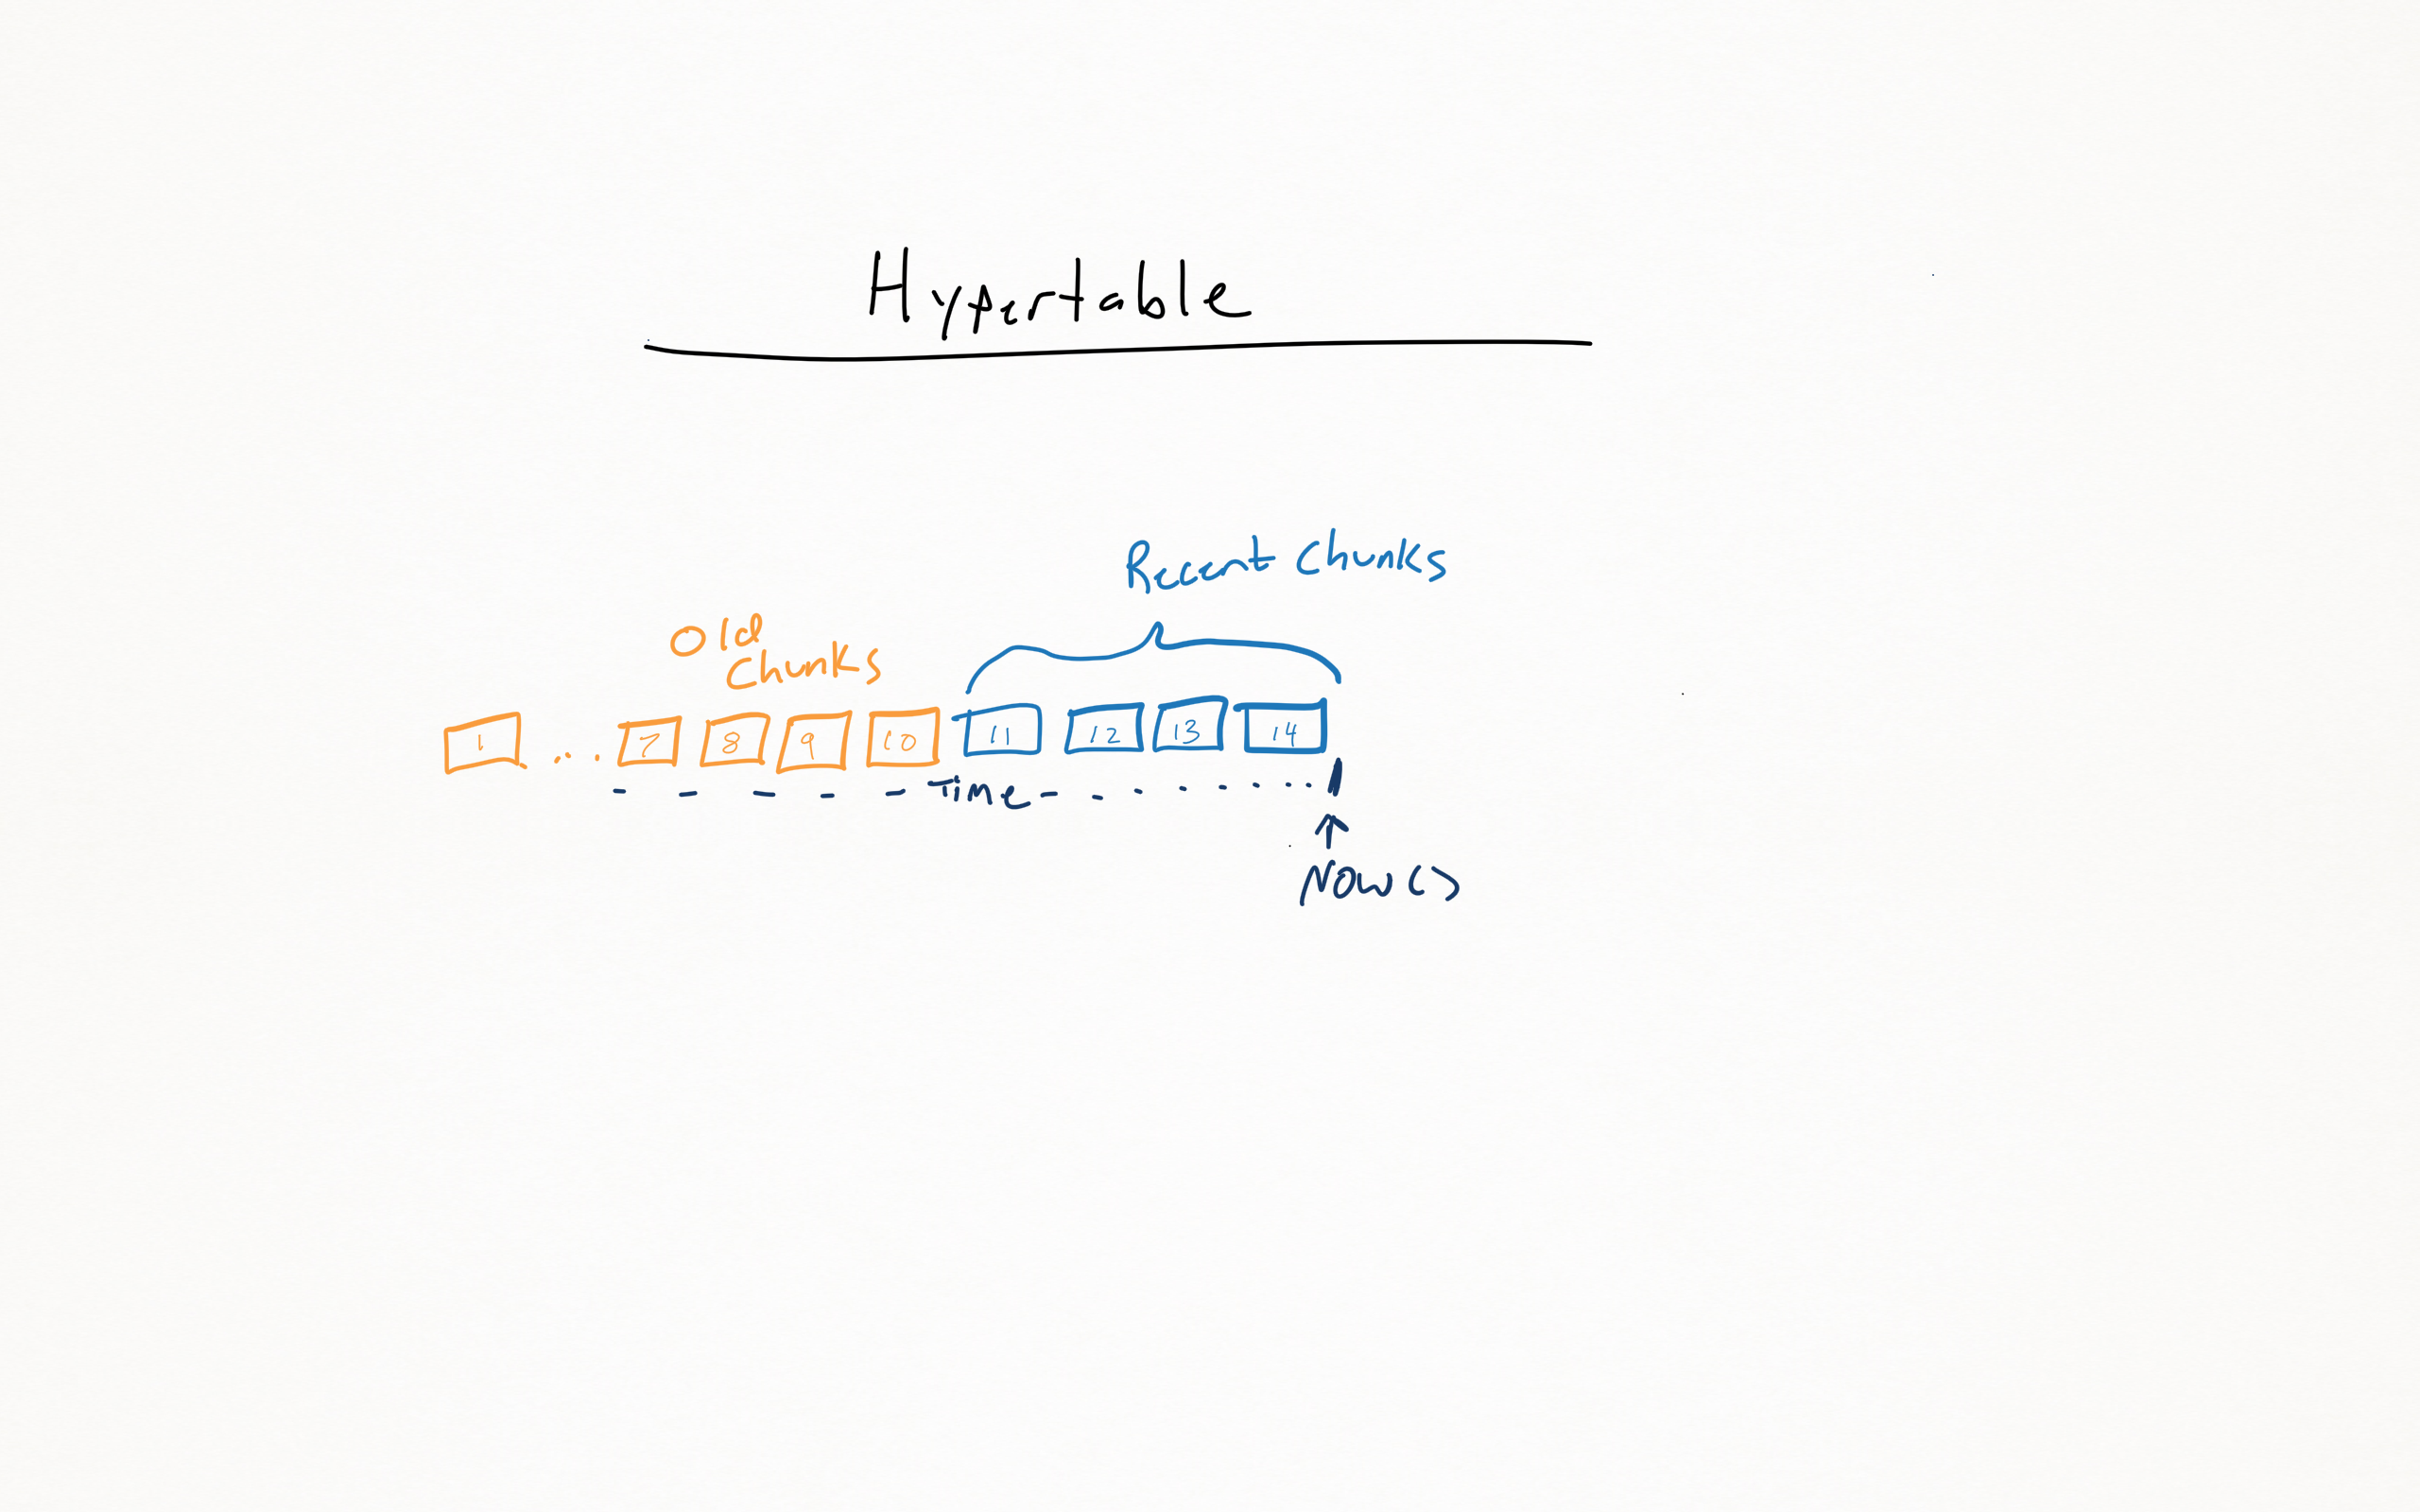 Hypertable
Recent Chunks
Old
Chunks
1 ... 7 8 9 10 11 12 13 14
Time
Now()